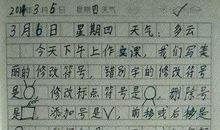 3月6日 星期四 天气：多云
今天下午上作文课，我们写美
丽的修改符号，错别字的修改符号
是○，修改标点符号是△，删除号
是□，添加号是∨，前移或后移是